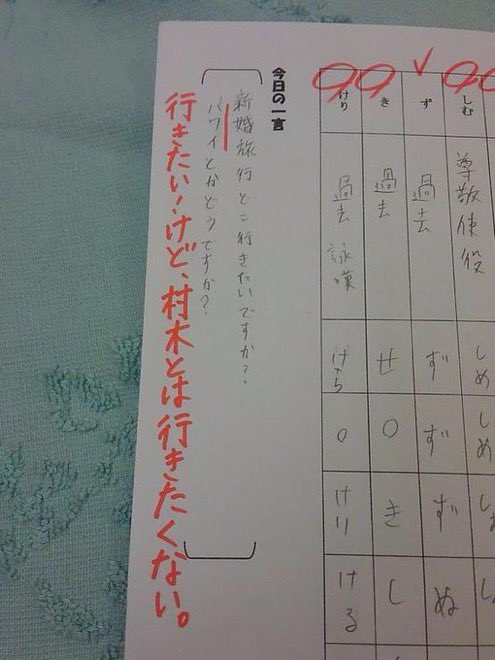 しむ
尊敬 使役
しめ
ず
過去
ず
ず
ず
ぬ
き
過去
せ
○
き
し
けり
過去 詠嘆
けら
○
けり
ける
今日の一言
新婚旅行どこ行きたいですか？
ハワイとかどうですか？
行きたい！けど、村木とは行きたくない。